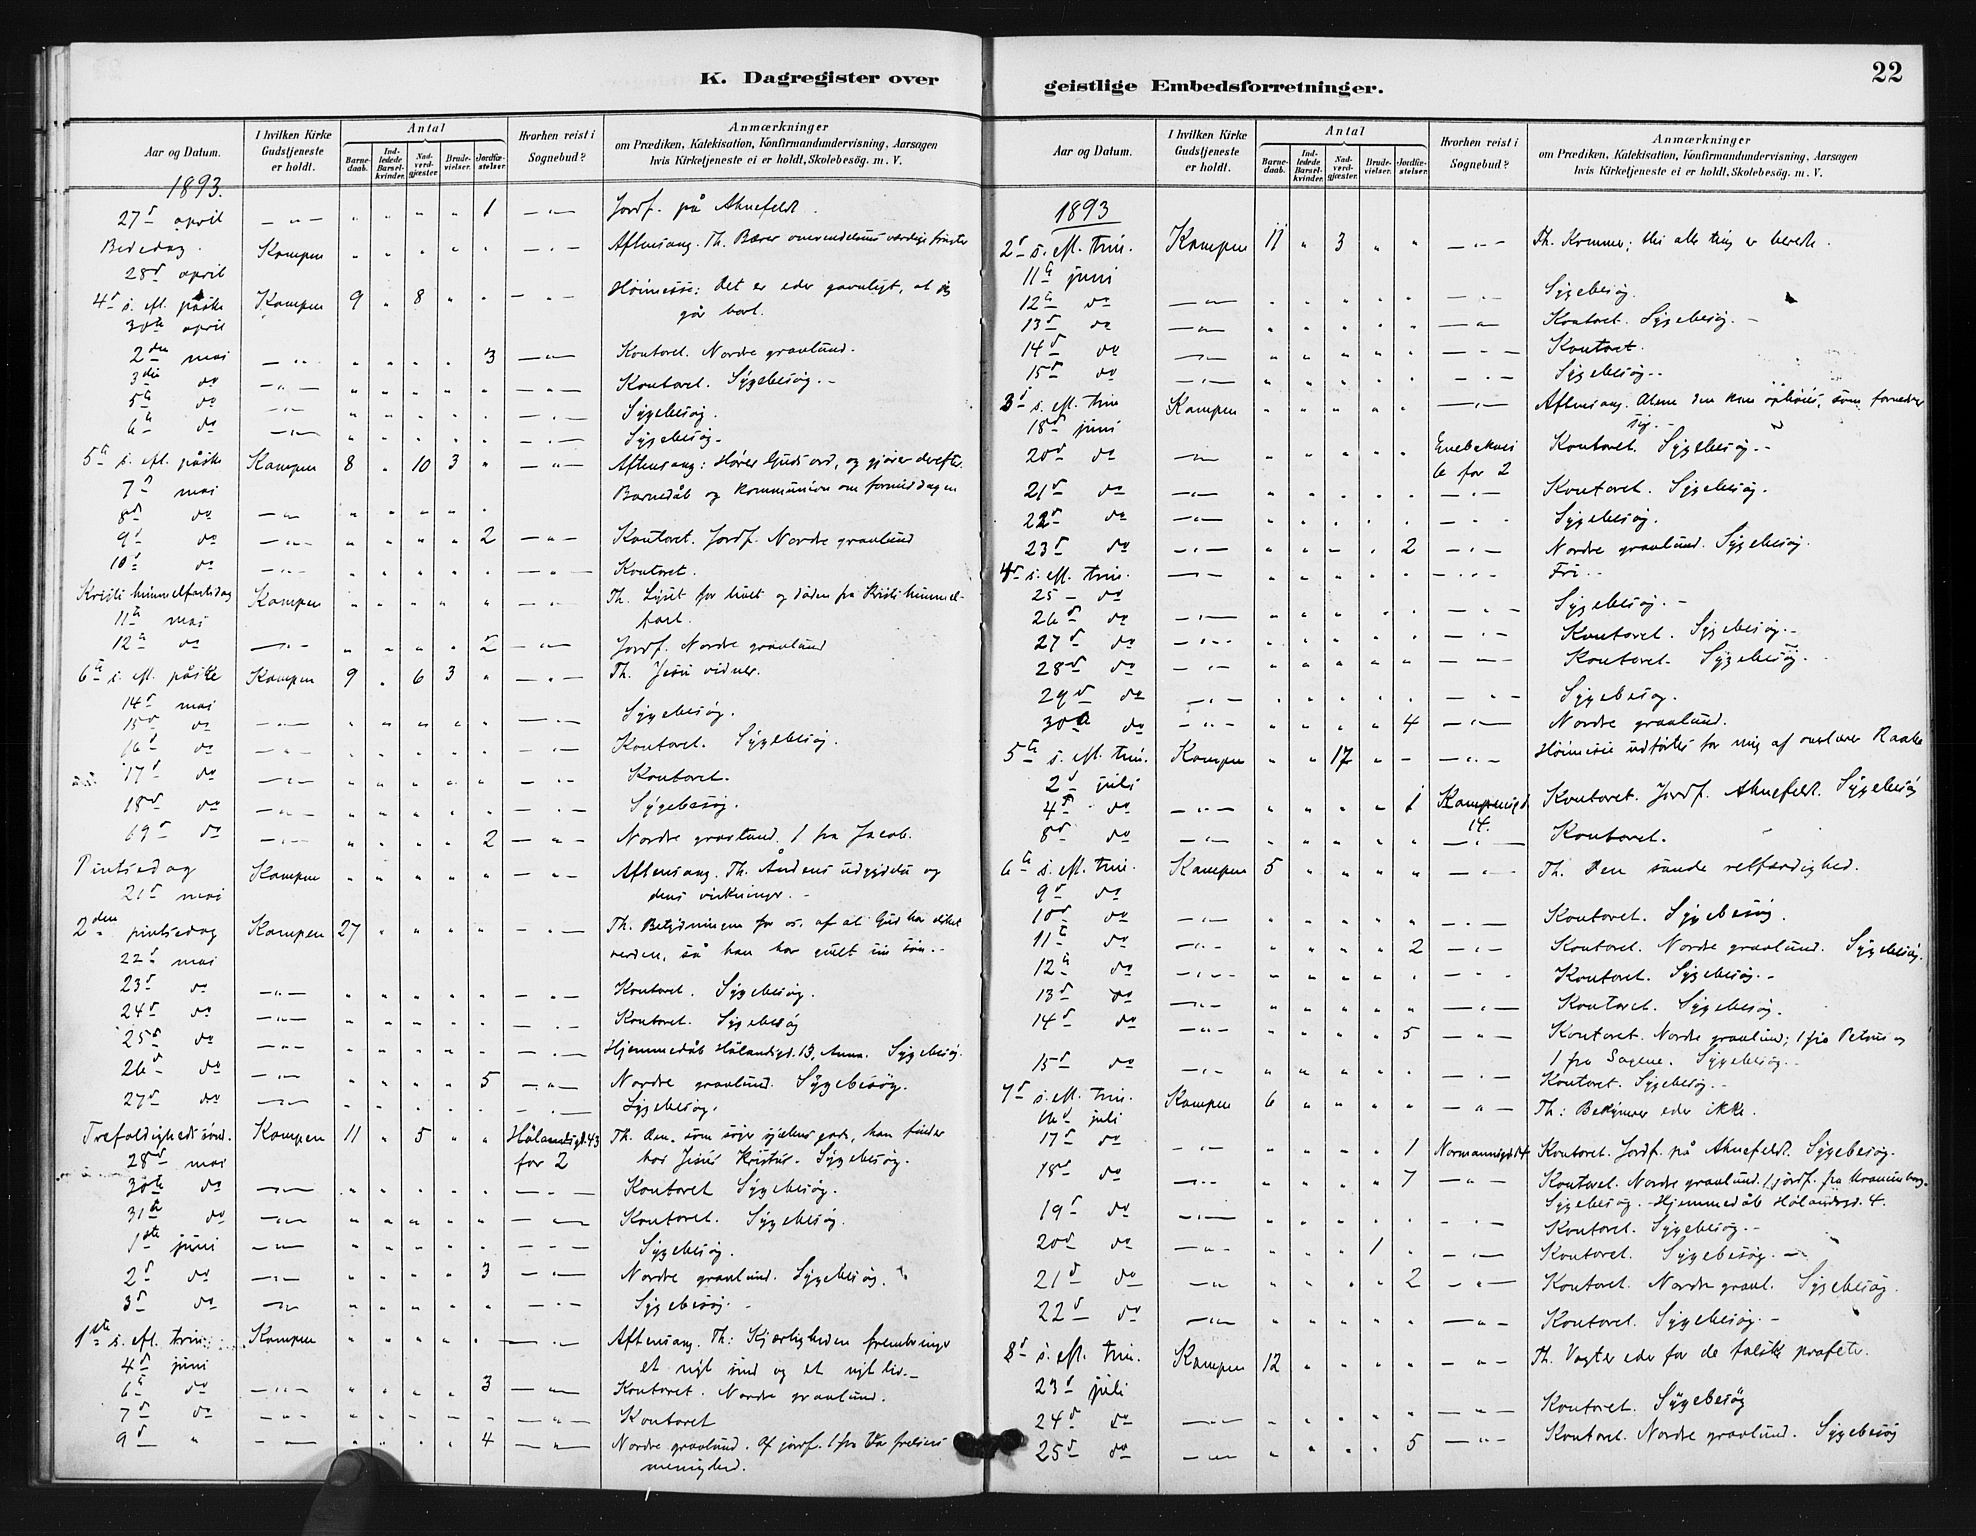 K. Dagregister over
Aar og Datum.
I hvilken Kirke Gudstjeneste er holdt.
Antal
Barne-daab.
Ind-ledede Barsel-kvinder.
Nad-verd-gjæster.
Brude-vielser.
Jordfæ-stelser.
Hvorhen reist i Sognebud?
Anmærkninger
om Prædiken, Katekisation, Konfirmandundervisning, Aarsagen
hvis Kirketjeneste ei er holdt, Skolebesög. m. V.
1893.
27d april — " — " " " " 1 — " — Jordf. på Aknefeldt.
Bededag. Kampen " " " " " — " — Aftensang. Th. Bærer omvendelsens værdige frugter
28d april
4d s. eft. påske Kampen 9 " 8 " " — " — Høimesse: Det er eder gavnligt, at jeg
30te april går bort.
2den mai — " — " " " " 3 — " — Kontoret. Nordre gravlund.
3die do — " — " " " " " — " — Kontoret. Sygebesøg. -
5te do — " — " " " " " — " — Sygebesøg.
6te do — " — " " " " " — " — Sygebesøg -
5te s. eft. påske Kampen 8 " 10 3 " — " — Aftensang: Hører Guds ord, og gjører derefter.
7d mai Barnedåb og kommunion om formiddagen
8d do — " — " " " " "
9d do — " — " " " " 2 — " — Kontoret. Jordf. Nordre gravlund
10d do — " — " " " " " — " — Kontoret.
Kristi himmelfartsdag Kampen " " " " " — " — Th. Lyset for livet og døden fra Kristi himmel-
11te mai fart.
12te do — " — " " " " 2 — " — Jordf. Nordre gravlund
6te s. eft. påske Kampen 9 " 6 3 " — " — Th. Jesu vidner.
14d mai
15d do — " — " " " " " — " — Sygebesøg.
16d do — " — " " " " " — " — Kontoret. Sygebesøg.
17d do — " — " " " " " — " — Kontoret.
18d do — " — " " " " " — " — Sygebesøg.
19d do — " — " " " " 2 — " — Nordre gravlund. 1 fra Jacob.
Pintsedag Kampen " " " " " — " — Aftensang. Th. Åndens udgydelse og
21d mai dens virkninger. -
2den pintsedag Kampen 27 " " " " — " — Th. Betydningen for os af at Gud har elsket
22d mai verden, så han har givet sin søn. -
23d do — " — " " " " " — " — Kontoret. Sygebesøg.
24d do — " — " " " " " — " — Kontoret. Sygebesøg
25d do — " — " " " " " — " — Hjemmedåb Hølandsgd. 13, Anna. Sygebesøg.
26d do — " — " " " " 5 — " — Nordre gravlund. Sygebesøg.
27d do — " — " " " " " — " — Sygebesøg.
Trefoldighedssønd. Kampen 11 " 5 " " Hølandsgd. 43 Th. Den, som søger sjælens gode, han finder
28d mai for 2 hos Jesus Kristus. Sygebesøg.
30te do — " — " " " " " — " — Kontoret Sygebesøg.
31te do — " — " " " " " — " — Kontoret. Sygebesøg.
1ste juni — " — " " " " " — " — Sygebesøg.
2d do — " — " " " " 3 — " — Nordre gravlund. Sygebesøg.
3d do — " — " " " " " — " — Sygebesøg. -
1ste s. eft. trin. Kampen " " " " " — " — Aftensang. Th: Kjærligheden frembringer
4d juni et nyt sind og et nyt liv. -
6te do — " — " " " " 3 — " — Kontoret. Nordre gravlund.
7d do — " — " " " " " — " — Kontoret
9d " — " — " " " " 4 — " — Nordre gravlund. Af jordf. 1 fra Vor frelsers
menighed.
geistlige Embedsforretninger.
22
Aar og Datum.
I hvilken Kirke Gudstjeneste er holdt.
Antal
Barne-daab.
Ind-ledede Barsel-kvinder.
Nad-verd-gjæster.
Brude-vielser.
Jordfæ-stelser.
Hvorhen reist i Sognebud?
Anmærkninger
om Prædiken, Katekisation, Konfirmandundervisning, Aarsagen
hvis Kirketjeneste ei er holdt, Skolebesög. m. V.
1893
2d s. eft. trin. Kampen 11 " 3 " " — " — Th. Kommer; thi alle ting er beredt.
11te juni
12te do — " — " " " " " — " — Sygebesøg.
13d do — " — " " " " " — " — Kontoret. Sygebesøg. -
14d do — " — " " " " " — " — Kontoret.
15d do — " — " " " " " — " — Sygebesøg. -
3d s. eft. trin Kampen " " " " " — " — Aftensang. Alene den kan ophøies, som fornedrer
18d juni sig. -
20d do — " — Enebakvei Kontoret. Sygebesøg. -
6 for 2
21d do — " — " " " " " — " — Kontoret. Sygebesøg.
22d do — " — " " " " " — " — Sygebesøg.
23d do — " — " " " " 2 — " — Nordre gravlund. Sygebesøg.
4d s. eft. trin. — " — " " " " " — " — Fri. -
25 - do
26d do — " — " " " " " — " — Sygebesøg. -
27d do — " — " " " " " — " — Kontoret. Sygebesøg. -
28d do — " — " " " " " — " — Kontoret. Sygebesøg.
29d do — " — " " " " " — " — Sygebesøg.
30te do — " — " " " " 4 — " — Nordre gravlund.
5te s. eft. trin. Kampen " " 17 " - — " — Høimesse udførtes for mig af overlærer Raabe
2d juli
4d do — " — " " " " 1 Kampensgd. Kontoret. Jordf. Aknefeldt. Sygebesøg
14.
8d do — " — " " " " " — " — Kontoret.
6te s. eft. trin. Kampen 5 " " " " — " — Th. Den sande retfærdighed.
9d do
10d do — " — " " " " " — " — Kontoret. Sygebesøg.
11te do — " — " " " " 2 — " — Kontoret. Nordre gravlund. Sygebesøg.
12te do — " — " " " " " — " — Kontoret. Sygebesøg. -
13d do — " — " " " " " — " — Kontoret. Sygebesøg.
14d do — " — " " " " 5 — " — Kontoret. Nordre gravlund; 1 fra Petrus og
1 fra Sagene. Sygebesøg. -
15d do — " — " " " " " — " — Kontoret. Sygebesøg. -
7d s. eft. trin. Kampen 6 " " " " — " — Th: Bekymrer eder ikke.
16d juli
17d do — " — " " " " 1 Normannsgd. 4 Kontoret. Jordf. på Aknefeldt. Sygebesøg.
18d do — " — " " " " 7 — " — Kontoret. Nordre gravlund. 1 jordf. fra
Sygebesøg. Hjemmedåb Hølandsgd. 4.
19d do — " — " " " " " — " — Kontoret. Sygebesøg. -
20d do — " — " " " 1 " — " — Kontoret. Sygebesøg. -
21d do — " — " " " " 2 — " — Kontoret. Nordre gravl. Sygebesøg.
22d do — " — " " " " " — " — Kontoret. Sygebesøg. -
8d s. eft. trin. Kampen 12 " " " " — " — Th. Vogter eder for de falske profeter.
23d juli
24d do — " — " " " " " — " — Kontoret. Sygebesøg
25d do — " — " " " " 5 — " — Kontoret. Nordre gravlund. Sygebesøg